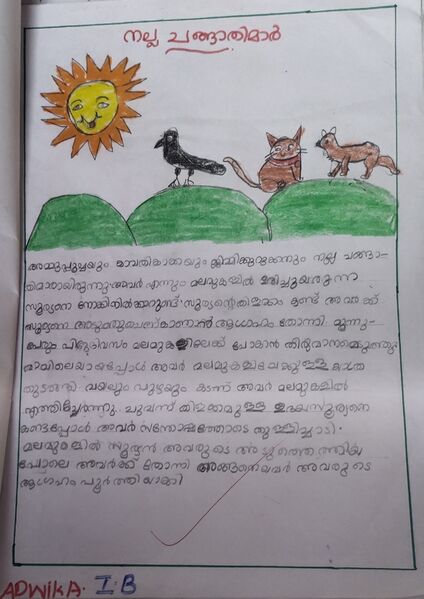 നല്ല ചങ്ങാതിമാർ
അമ്മുപ്പൂച്ചയും മാലതികാക്കയും ജിമ്മിക്കുറുക്കനും നല്ല ചങ്ങാ-
തിമാരായിരുന്നു. അവർ എന്നും മലമുകളിൽ ഉദിച്ചുയരുന്ന
സൂര്യനെ നോക്കിനിൽക്കാറുണ്ട്. സൂര്യന്റെതിളക്കം കണ്ട് അവർക്ക്
സൂര്യനെ അടുത്തുചെന്ന്കാണാൻ ആഗ്രഹം തോന്നി. മൂന്നു-
പേരും പിറ്റേദിവസം മലമുകളിലേക്ക് പോകാൻ തീരുമാനമെടുത്തു.
രാവിലെയായപ്പോൾ അവർ മലമുകളിലേക്കുള്ള യാത്ര
തുടങ്ങി. വയലും പുഴയും കടന്ന് അവർ മലമുകളിൽ
എത്തിച്ചേർന്നു. ചുവന്ന് തിളക്കമുള്ള ഉദയസൂര്യനെ
കണ്ടപ്പോൾ അവർ സന്തോഷത്തോടെ തുള്ളിച്ചാടി.
മലമുകളിൽ സൂര്യൻ അവരുടെ അടുത്തെത്തിയ
പോലെ അവർക്ക് തോന്നി അങ്ങനെയവർ അവരുടെ
ആഗ്രഹം പൂർത്തിയാക്കി
ADWIKA. I.B